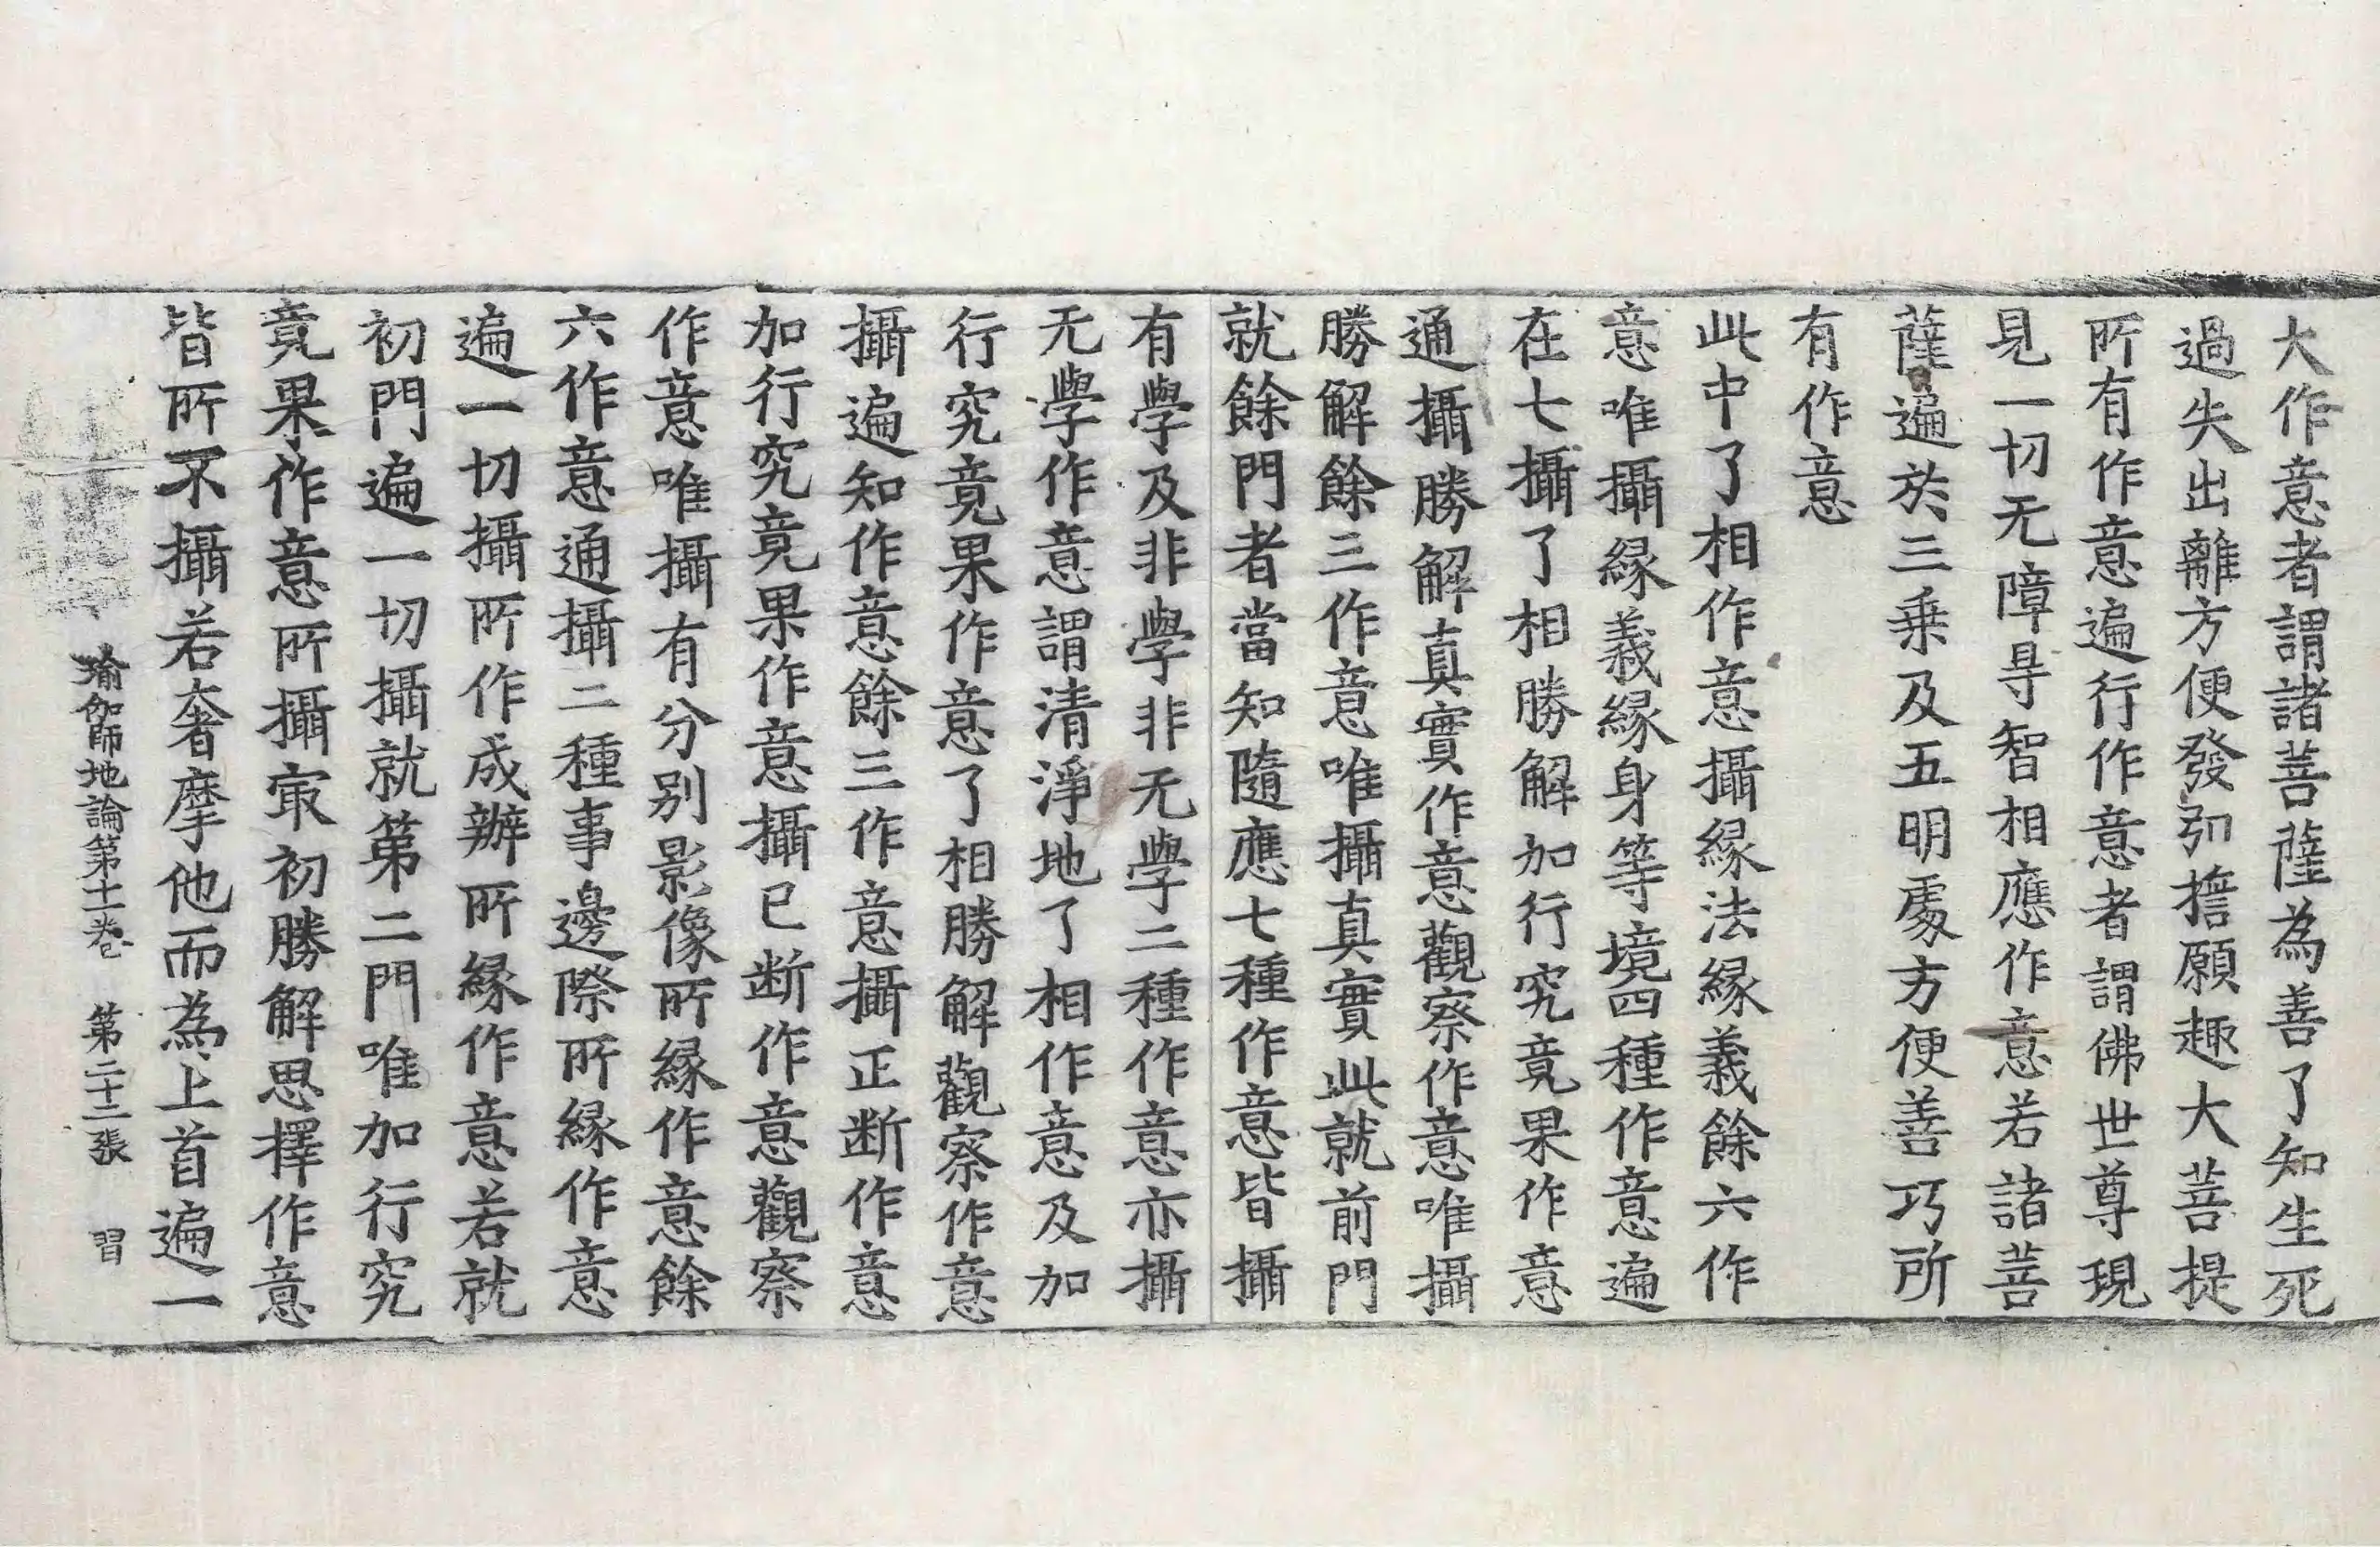 大作意者謂諸菩薩為善了知生死
過失出離方便發引擔願趣大菩提
所有作意遍行作意者謂佛世尊現
見一切无障㝵智相應作意若諸菩
薩遍於三乗及五明處方便善巧所
有作意
此中了相作意攝縁法縁義餘六作
意唯攝縁義縁身等境四種作意遍
在七攝了相勝解加行究竟果作意
通攝勝解真實作意觀察作意唯攝
勝解餘三作意唯攝真實此就前門
就餘門者當知隨應七種作意皆攝
有學及非學非无學二種作意亦攝
无學作意謂清淨地了相作意及加
行究竟果作意了相勝解觀察作意
攝遍知作意餘三作意攝正断作意
加行究竟果作意攝已断作意觀察
作意唯攝有分别影像所縁作意餘
六作意通攝二種事邊際所縁作意
遍一切攝所作成辦所縁作意若就
初門遍一切攝就第二門唯加行究
竟果作意所攝㝡初勝解思擇作意
皆所不攝若奢摩他而為上首遍一
瑜伽師地論第十一卷　第二十二張　習